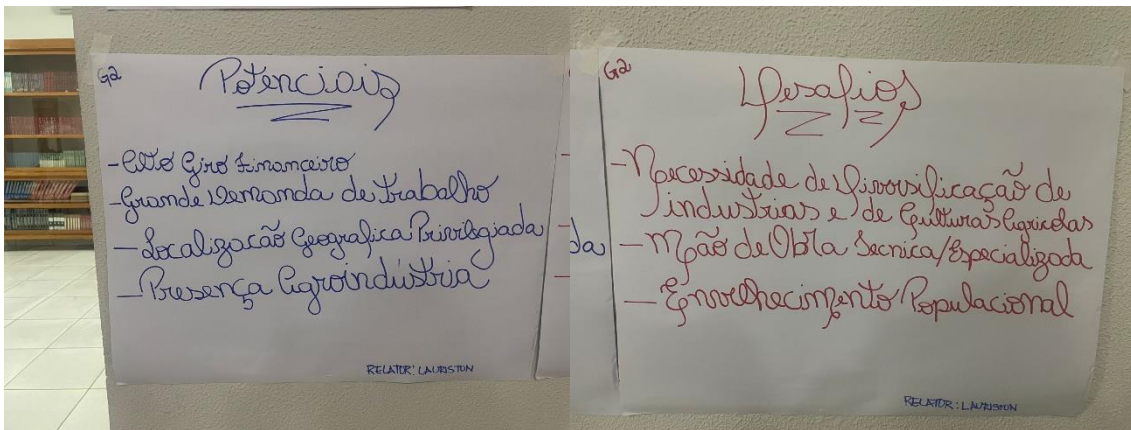 G2
Potenciais
- Alto Giro Financeiro
- Grande Demanda de Trabalho
- Localização Geografica Privilegiada
- Presença Agroindústria
RELATOR: LAURISTON
da
G2
Desafios
- Necessidade de Diversificação de
industrias e de Culturas Agricolas
- Mão de Obra Tecnica/Especializada
- Envelhecimento Populacional
RELATOR: LAURISTON